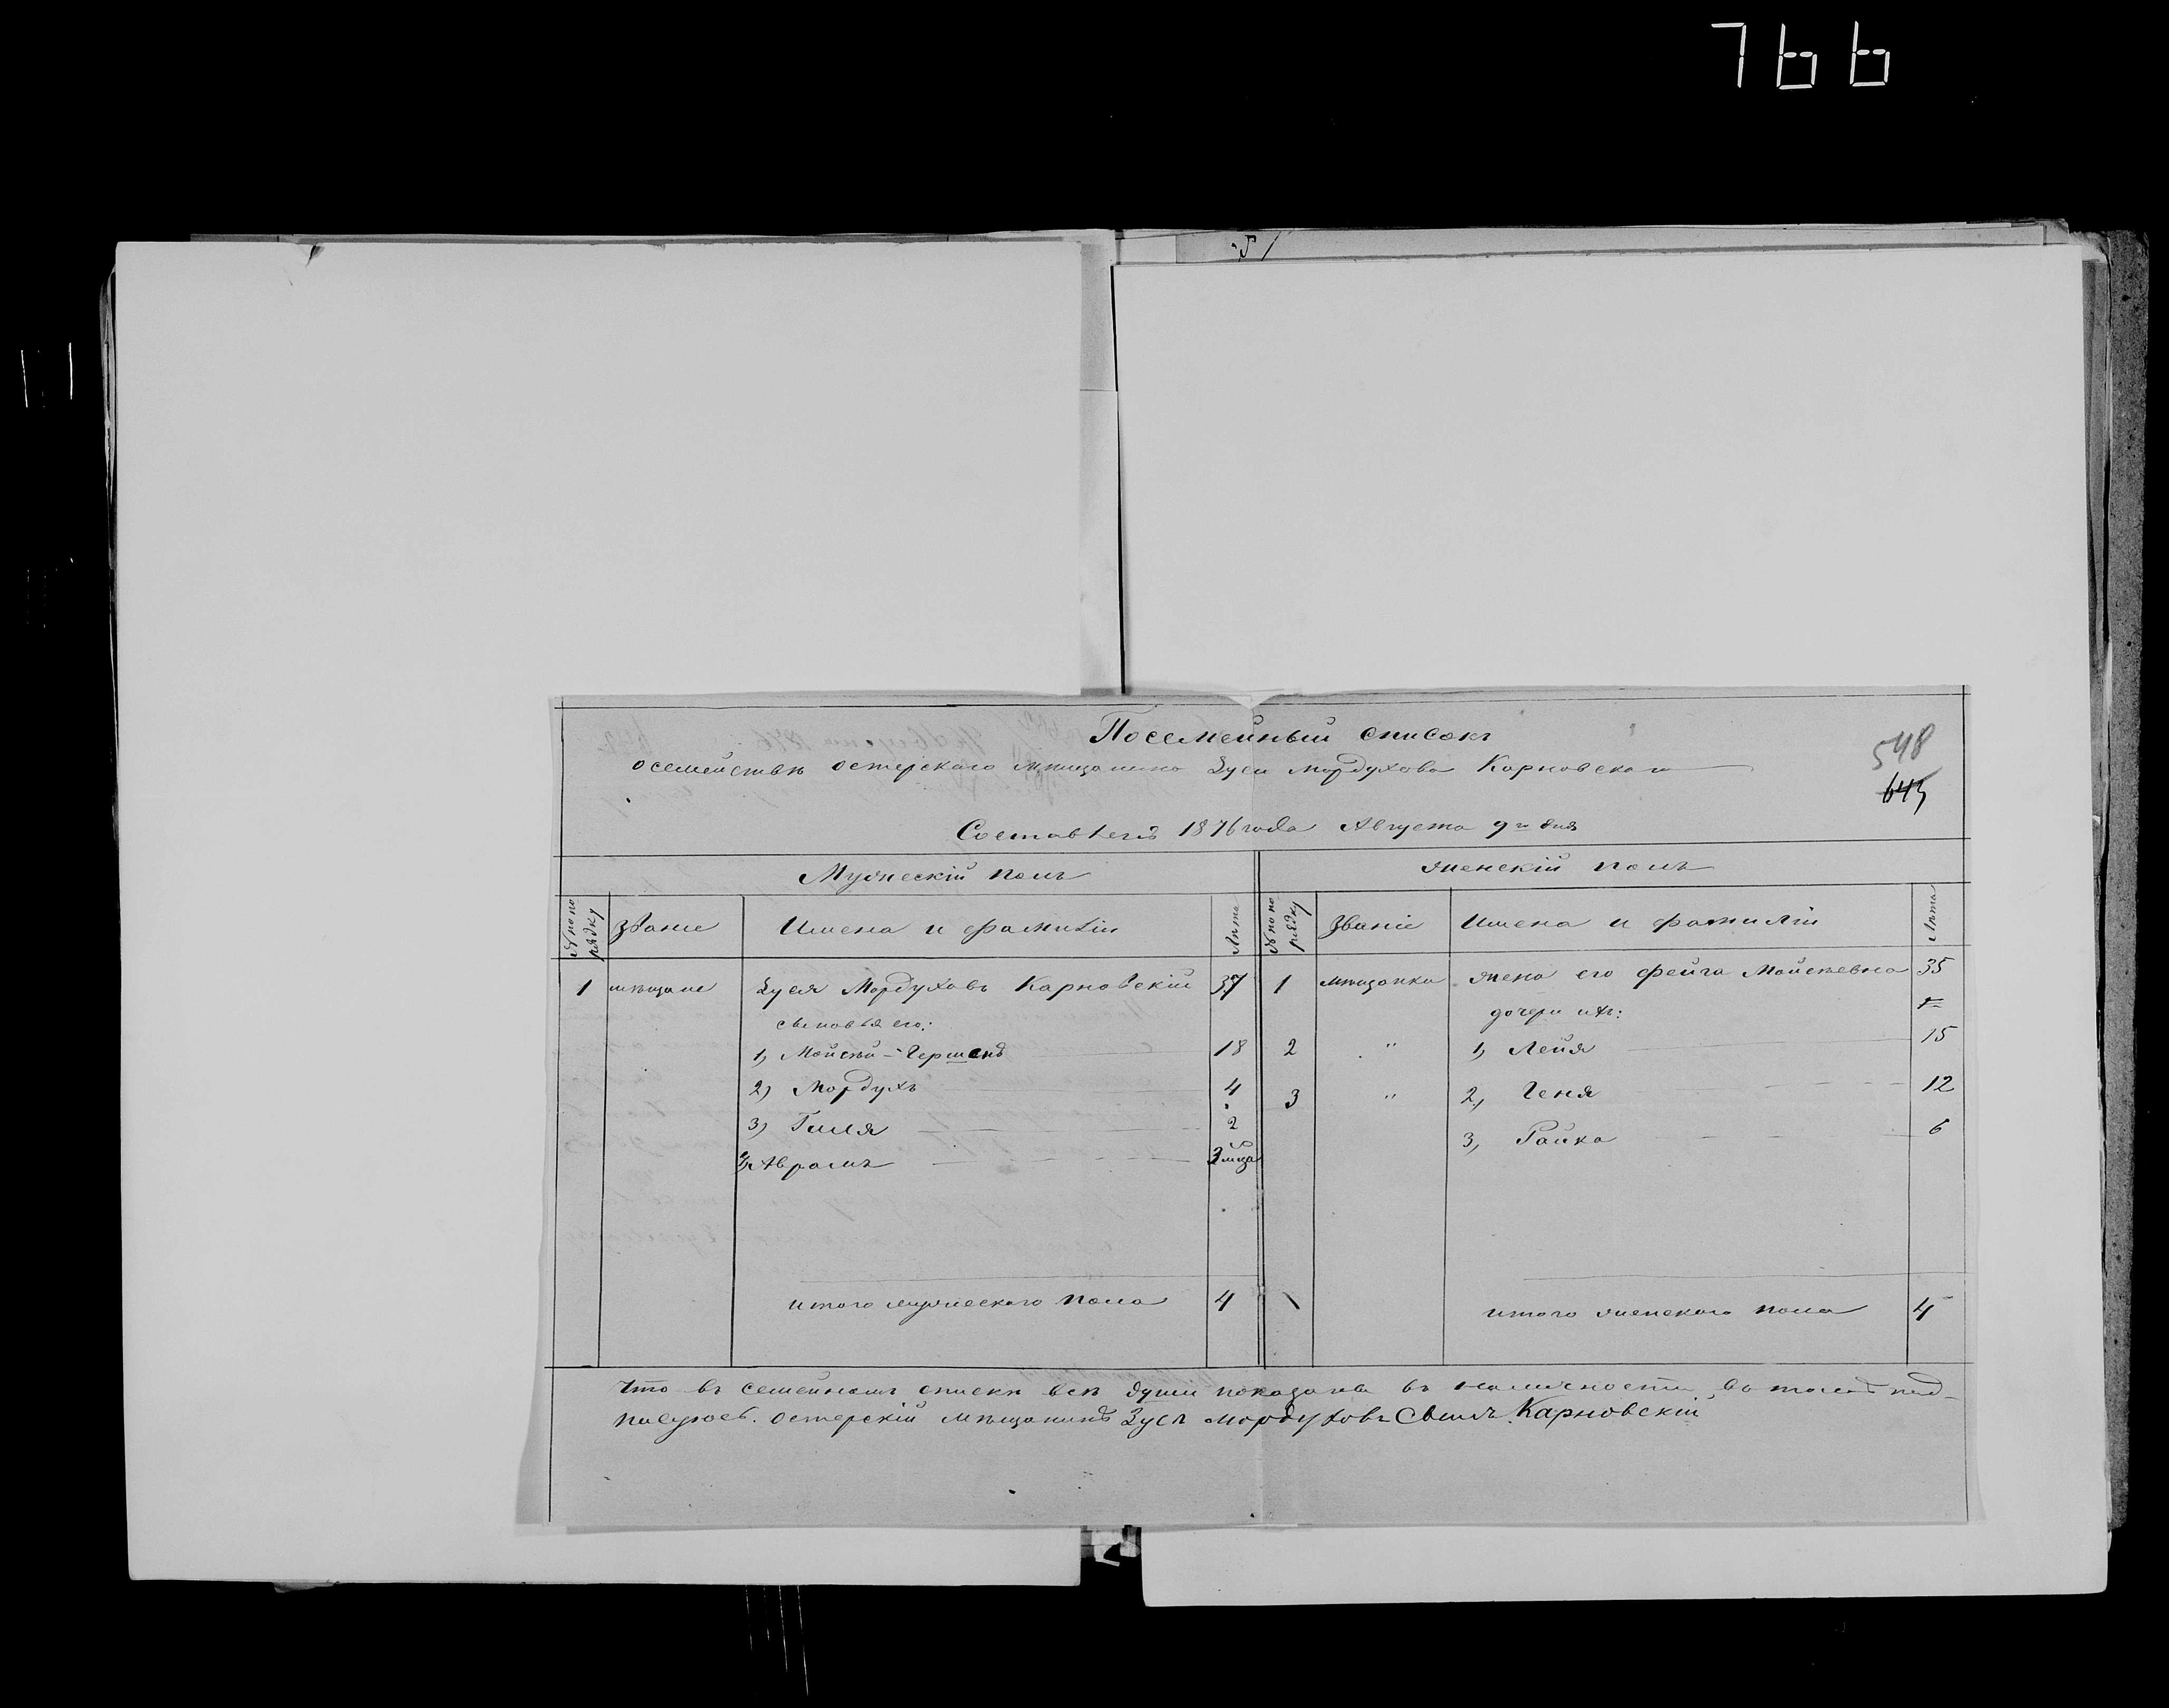 766
Посемейный списокъ
548
о семействѣ остерскаго мѣщанина Зуси Мордухова Карновскаго
643
Составленъ 1876 года Августа 9го дня
Мужескій полъ
Женскій полъ
№ по порядку
Званіе
Имена и фамиліи
Лѣта
№ по порядку
Званіе
Имена и фамиліи
Лѣта
1 мѣщане Зуся Мордуховъ Карновскій 37 1 мѣщанка жена его Фейга Мойсѣевна 35
сыновья его: дочери ихъ:
1, Мойсѣй-Гершенъ 18 2 " 1, Лейя 15
2) Мордухъ 4 3 " 2, Геня 12
3) Гиля 2 3, Райка 6
4, Аврамъ
итого мужескаго пола 4 итого женскаго пола 4
Что въ семейномъ спискѣ всѣ души показаны въ наличности, въ томъ под-
писуюсь. Остерскій мѣщанинъ Зусь Мордуховъ Сынъ Карновскій